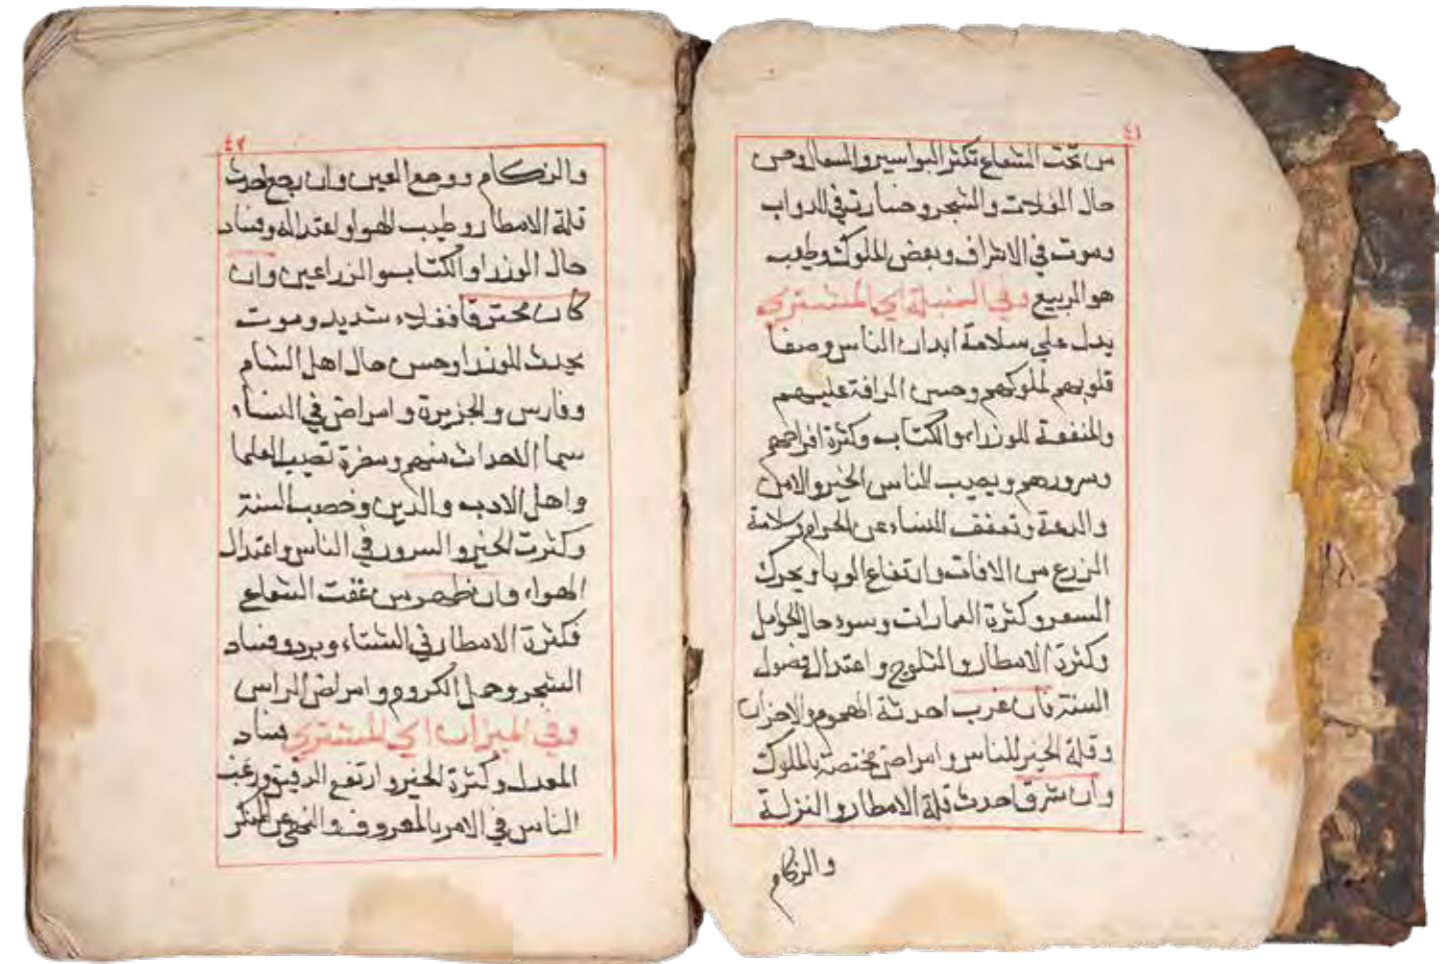 ٤١
من تحت الشعاع تكثر البواسير والسعال وحسن
حال الغلات والشجر وخسارت في الدواب
وموت في الاشراف وبعض الملوك وطيب
هو الربيع وفي السنبلة اي المشتري
يدل علي سلامة ابدان الناس وصفا
قلوبهم لملوكهم وحسن الرافة عليهم
والمنفعة للوزراء والكتاب وكثرة افراحهم
وسرورهم ويصيب الناس الخير والامن
والدعة وتعفف النساء عن الحرام وسلامة
الزرع من الافات وارتفاع الوبا ويحرك
السعر وكثرة العمارات وسوء حال الحوامل
وكثرة الامطار والثلوج واعتدال فصول
السنة فان غرب احدثة الهموم والاحزان
وقلة الخير للناس وامراض مختصة بالملوك
وان شرق احدث قلة الامطار والنزلة
والزكام
٤٢
والزكام ووجع العين وان رجع احدث
قلة الامطار وطيب الهوا واعتداله وفساد
حال الوزرا والكتاب والزراعين وان
كان محترقا فغلاء شديد وموت
يحدث للوزرا وحسن حال اهل الشام
وفارس والجزيرة وامراض في النساء
سيما الاحداث منهم ومضرة تصيب العلما
واهل الادب والدين وخصب السنة
وكثرت الخير والسرور في الناس واعتدال
الهواء وان ظهر من تحت الشعاع
فكثرة الامطار في الشتاء وبرد وفساد
الشجر وحمل الكروم وامراض الراس
وفي الميزان اي المشتري فساد
المعدل وكثرة الخير وارتفع الدقيق ورغب
الناس في الامر بالمعروف والنهي عن المنكر